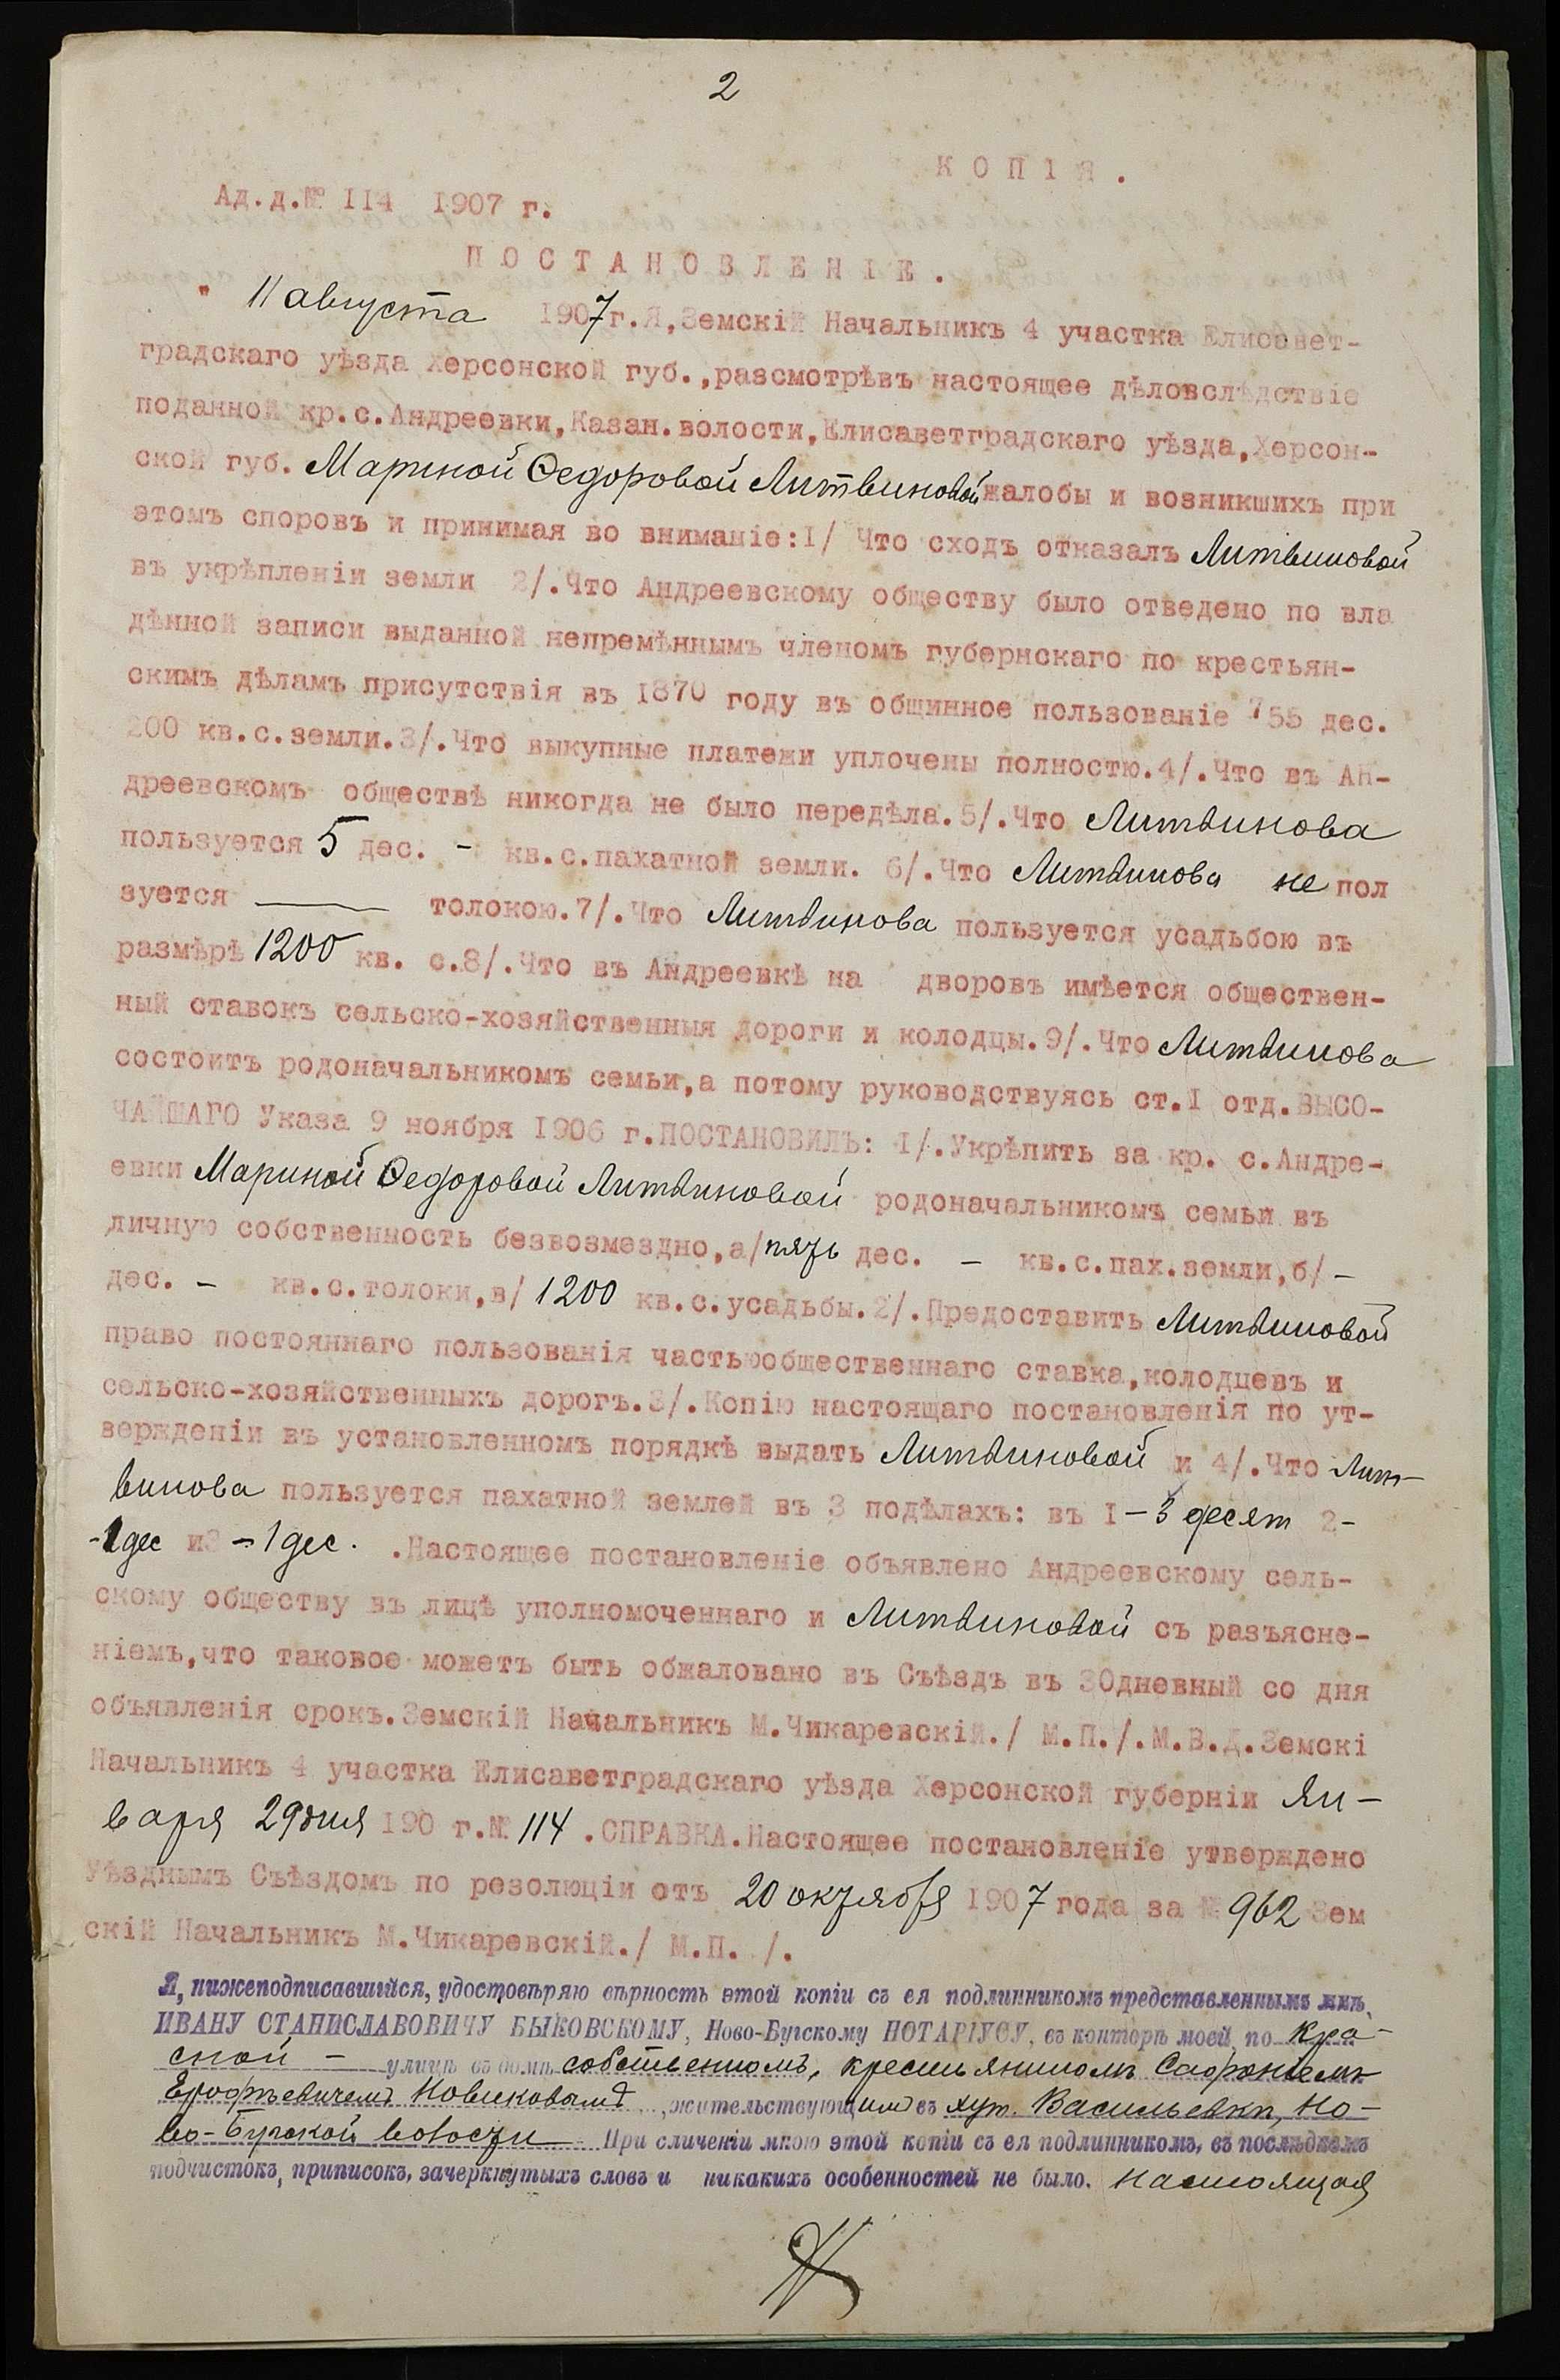 2
КОПІЯ.
Ад.д.№ 114 1907 г.
ПОСТАНОВЛЕНІЕ.
" 11 августа 1907г.Я,Земскій Начальникъ 4 участка Елисавет-
градскаго уѣзда Херсонской губ.,разсмотрѣвъ настоящее дѣловслѣдствіе
поданной кр.с.Андреевки,Казан.волости,Елисаветградскаго уѣзда,Херсон-
ской губ. Мариной Ѳедоровой Литвиновой жалобы и возникшихъ при
этомъ споровъ и принимая во вниманіе:I/ Что сходъ отказалъ Литвиновой
въ укрѣпленіи земли 2/.Что Андреевскому обществу было отведено по вла
дѣнной записи выданной непремѣннымъ членомъ губернскаго по крестьян-
скимъ дѣламъ присутствія въ 1870 году въ общинное пользованіе 755 дес.
200 кв.с.земли.3/.Что выкупные платежи уплочены полностю.4/.Что въ АН-
дреевскомъ обществѣ никогда не было передѣла.5/.Что Литвинова
пользуется 5 дес. - кв.с.пахатной земли. 6/.Что Литвинова не пол
зуется — толокою.7/.Что Литвинова пользуется усадьбою въ
размѣрѣ 1200 кв. с.8/.Что въ Андреевкѣ на дворовъ имѣется обществен-
ный ставокъ сельско-хозяйственныя дороги и колодцы.9/.Что Литвинова
состоитъ родоначальникомъ семьи,а потому руководствуясь ст.I отд.ВЫСО-
ЧАЙШАГО Указа 9 ноября 1906 г.ПОСТАНОВИЛЪ: I/.Укрѣпить за кр. с.Андре-
евки Мариной Ѳедоровой Литвиновой родоначальникомъ семьи въ
личную собственность безвозмездно,а/ пять дес. - кв.с.пах.земли,б/ -
дес. - кв.с.толоки,в/ 1200 кв.с.усадьбы.2/.Предоставить Литвиновой
право постояннаго пользованія частьюобщественнаго ставка,колодцевъ и
сельско-хозяйственныхъ дорогъ.3/.Копію настоящаго постановленія по ут-
вержденіи въ установленномъ порядкѣ выдать Литвиновой и 4/.Что Лит-
винова пользуется пахатной землей въ 3 подѣлахъ: въ I - 3 десят 2-
-1 дес и3 - 1 дес. .Настоящее постановленіе объявлено Андреевскому сель-
скому обществу въ лицѣ уполномоченнаго и Литвиновой съ разъясне-
ніемъ,что таковое можетъ быть обжаловано въ Съѣздъ въ 30дневный со дня
объявленія срокъ.Земскій Начальникъ М.Чикаревскій./ М.П./.М.В.Д.Земскі
Начальникъ 4 участка Елисаветградскаго уѣзда Херсонской губерніи Ян-
варя 29 дня 190 г.№ 114 .СПРАВКА.Настоящее постановленіе утверждено
Уѣзднымъ Съѣздомъ по резолюціи отъ 20 октября 1907 года за № 962 Зем
скій Начальникъ М.Чикаревскій./ М.П. /.
Я, нижеподписавшійся, удостовѣряю вѣрность этой копіи съ ея подлинникомъ представленнымъ мнѣ,
ИВАНУ СТАНИСЛАВОВИЧУ БЫКОВСКОМУ, Ново-Бугскому НОТАРІУСУ, въ конторѣ моей, по Кра-
сной - улицѣ въ домѣ собственномъ, крестьяниномъ Софроніемъ
Ерофѣевичемъ Новиковымъ, жительствующимъ въ хут. Васильевкѣ, Но-
во-Бугской волости При сличеніи мною этой копіи съ ея подлинникомъ, въ послѣднемъ
подчистокъ, приписокъ, зачеркнутыхъ словъ и никакихъ особенностей не было. Настоящая